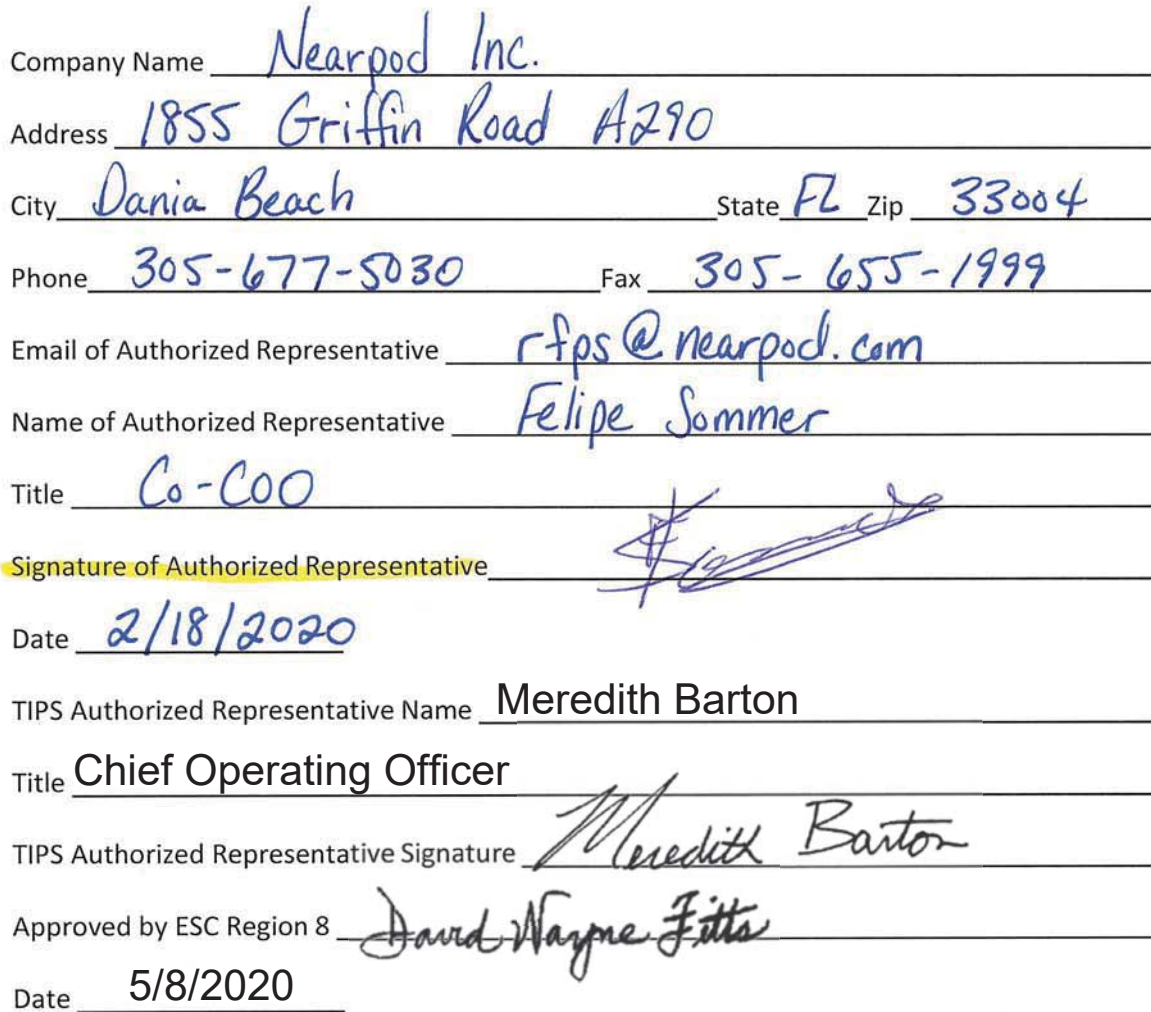 Company Name Nearpod Inc.
Address 1855 Griffin Road A290
City Dania Beach State FL Zip 33004
Phone 305-677-5030 Fax 305-655-1999
Email of Authorized Representative rfps@nearpod.com
Name of Authorized Representative Felipe Sommer
Title Co-COO
Signature of Authorized Representative
Date 2/18/2020
TIPS Authorized Representative Name Meredith Barton
Title Chief Operating Officer
TIPS Authorized Representative Signature Meredith Barton
Approved by ESC Region 8 David Wayne Fitts
Date 5/8/2020